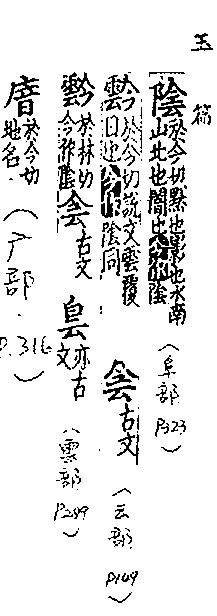 玉篇
陰 於今切默也影也水南山北也闇也今作陰
(阜部 P323)
霒 於今切說文雲覆日也今作陰同
侌 古文
(云部 P149)
霠 於林切今作陰
侌 古文
亦古文
(雲部 P289)
於今切地名.
(广部. P.316)